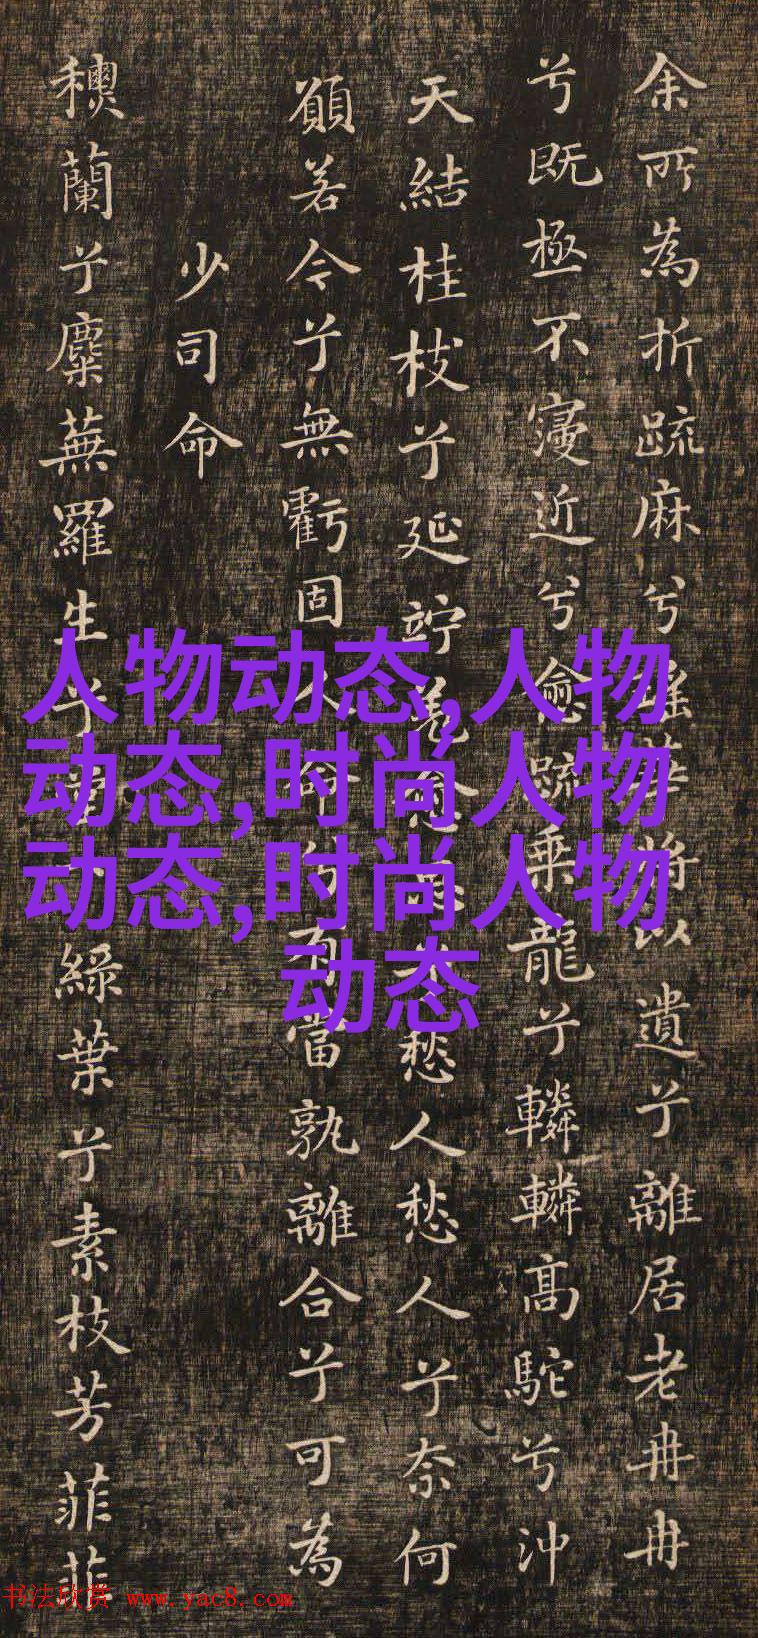 余所為折疏麻兮瑤華將以遺兮離居老冉冉
兮既極不寖近兮愈疏乘龍兮轔轔高駝兮沖
天結桂枝兮延竚羌愈思愁人愁人兮奈何
願若今兮無虧固人命兮有當孰離合兮可為
少司命
蘭兮麋蕪羅生乎堂下綠葉兮素枝芳菲菲
人物动态,人物
动态,时尚人物
动态,时尚人物
动态
书法欣赏 www.yac8.com